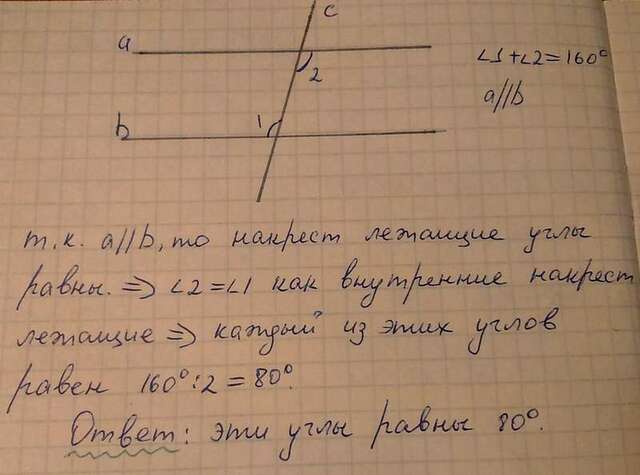 c
a
2
∠1+∠2=160°
a//b
b
1
т.к. a//b, то накрест лежащие углы
равны. ⇒ ∠2=∠1 как внутренние накрест
лежащие ⇒ каждый из этих углов
равен 160°:2=80°.
Ответ: эти углы равны 80°.